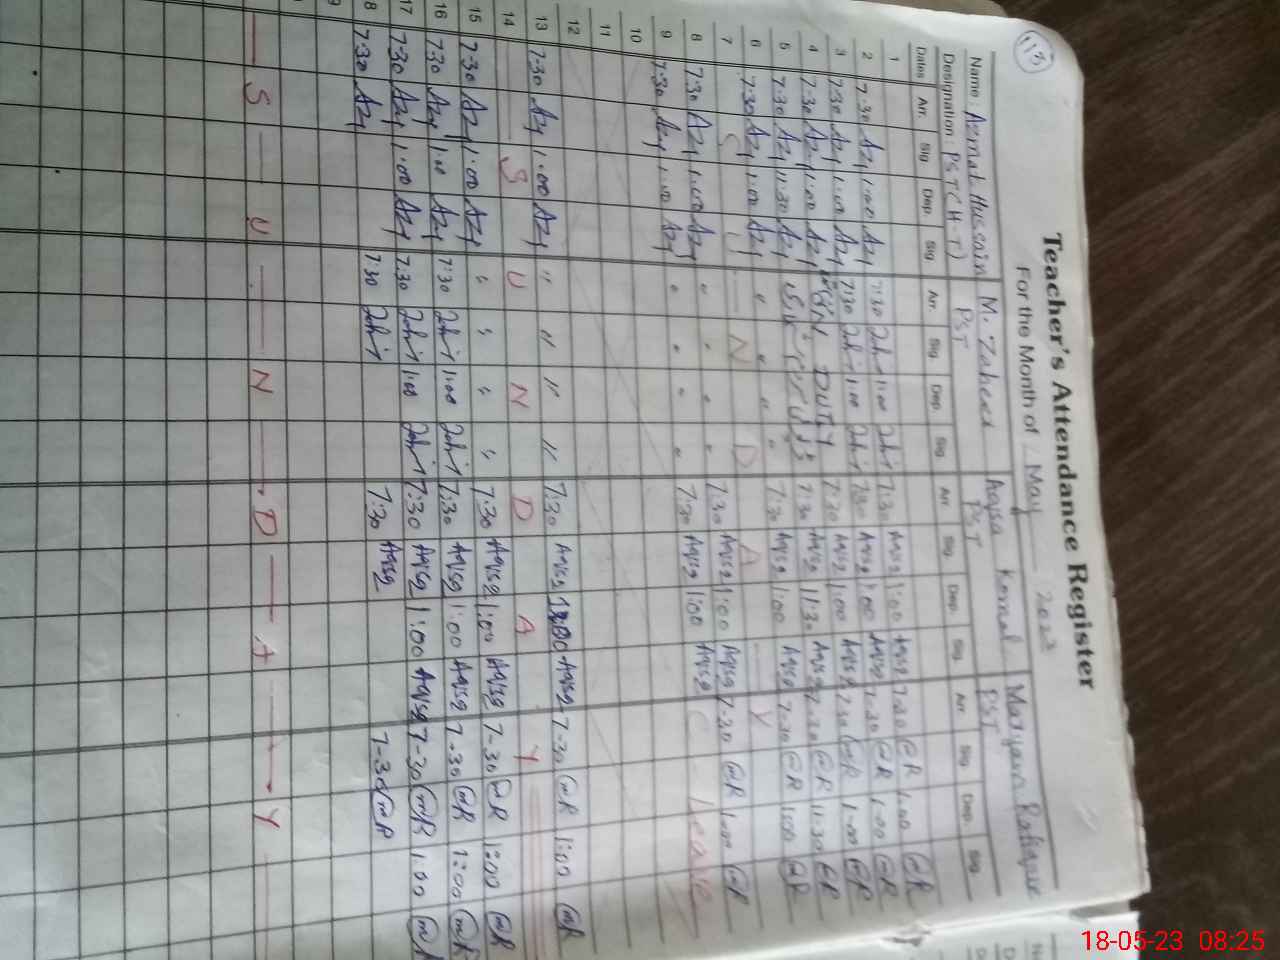 113
Teacher's Attendance Register
For the Month of May 2023
Name : Azmat Hussain M. Zaheer Aqsa Komal Maryam
Designation : PST (H-T) PST PST PST
Dates Arr. Sig. Dep. Sig. Arr. Sig. Dep. Sig. Arr. Sig. Dep. Sig. Arr. Sig. Dep. Sig.
1
2 7:30 Azt 1:00 Azt 7:30 Zahir 1:00 Zahir 7:30 Aqsa 1:00 Aqsa 7:30 @R 1:00 @R
3 7:30 Azt 1:00 Azt 7:30 Zahir 1:00 Zahir 7:30 Aqsa 1:00 Aqsa 7:30 @R 1:00 @R
4 7:30 Azt 1:00 Azt DUTY 7:30 Aqsa 1:00 Aqsa 7:30 @R 1:00 @R
5 7:30 Azt 11:30 Azt 7:30 Aqsa 11:30 Aqsa 7:30 @R 11:30 @R
6 7:30 Azt 1:00 Azt " " " " 7:30 Aqsa 1:00 Aqsa 7:30 @R 1:00 @R
7 S U N D A Y
8 7:30 Azt 1:00 Azt " " " " 7:30 Aqsa 1:00 Aqsa 7:30 @R 1:00 @R
9 7:30 Azt 1:00 Azt " " " " 7:30 Aqsa 1:00 Aqsa Leave
10
11
12
13 7:30 Azt 1:00 Azt " " " " 7:30 Aqsa 1:00 Aqsa 7:30 @R 1:00 @R
14 S U N D A Y
15 7:30 Azt 1:00 Azt " " " " 7:30 Aqsa 1:00 Aqsa 7:30 @R 1:00 @R
16 7:30 Azt 1:00 Azt 7:30 Zahir 1:00 Zahir 7:30 Aqsa 1:00 Aqsa 7:30 @R 1:00 @R
17 7:30 Azt 1:00 Azt 7:30 Zahir 1:00 Zahir 7:30 Aqsa 1:00 Aqsa 7:30 @R 1:00 @R
8 7:30 Azt 7:30 Zahir 7:30 Aqsa 7:30 @R
S U N D A Y
18-05-23 08:25